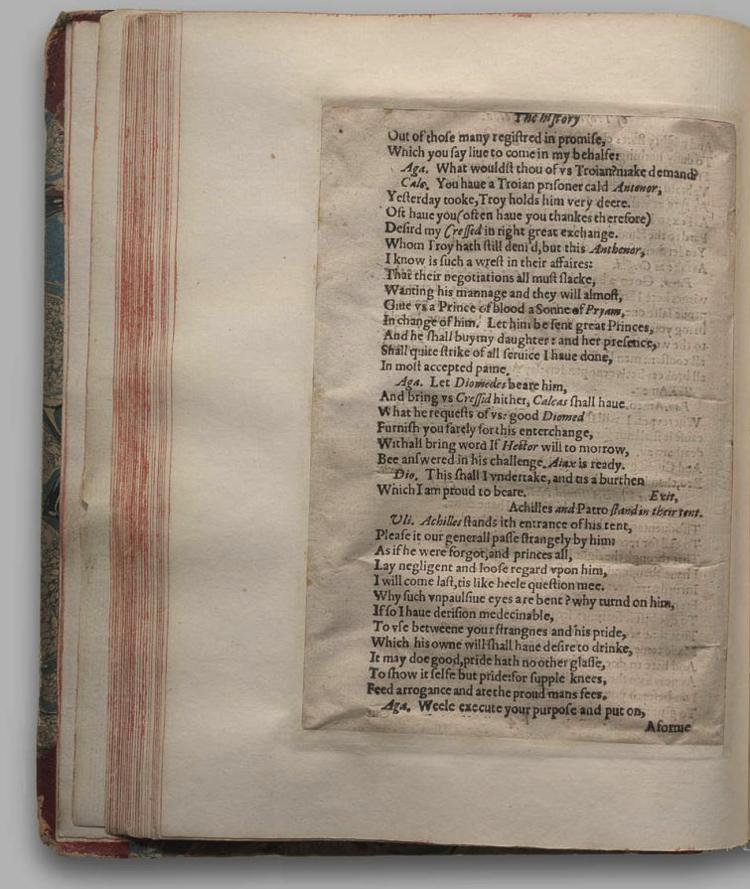 The history
Out of those many registred in promise,
Which you say liue to come in my behalfe:
Aga. What wouldst thou of vs Troian? make demand?
Calc. You haue a Troian prisoner cald Antenor,
Yesterday tooke, Troy holds him very deere.
Oft haue you (often haue you thankes therefore)
Desird my Cressed in right great exchange.
Whom Troy hath still deni'd, but this Anthenor,
I know is such a wrest in their affaires:
That their negotiations all must slacke,
Wanting his mannage and they will almost,
Giue vs a Prince of blood a Sonne of Pryam,
In change of him. Let him be sent great Princes,
And he shall buy my daughter: and her presence,
Shall quite strike of all seruice I haue done,
In most accepted paine.
Aga. Let Diomedes beare him,
And bring vs Cressid hither, Calcas shall haue
What he requests of vs: good Diomed
Furnish you farely for this enterchange,
Withall bring word If Hector will to morrow,
Bee answered in his challenge. Aiax is ready.
Dio. This shall I vndertake, and tis a burthen
Which I am proud to beare. Exit,
Achilles and Patro stand in their tent.
Vli. Achilles stands ith entrance of his tent,
Please it our generall passe strangely by him:
As if he were forgot, and princes all,
Lay negligent and loose regard vpon him,
I will come last, tis like heele question mee.
Why such vnpaulsiue eyes are bent? why turnd on him,
If so I haue derision medecinable,
To vse betweene your strangnes and his pride,
Which his owne will shall haue desire to drinke,
It may doe good, pride hath no other glasse,
To show it selfe but pride: for supple knees,
Feed arrogance and are the proud mans fees.
Aga. Weele execute your purpose and put on,
A forme